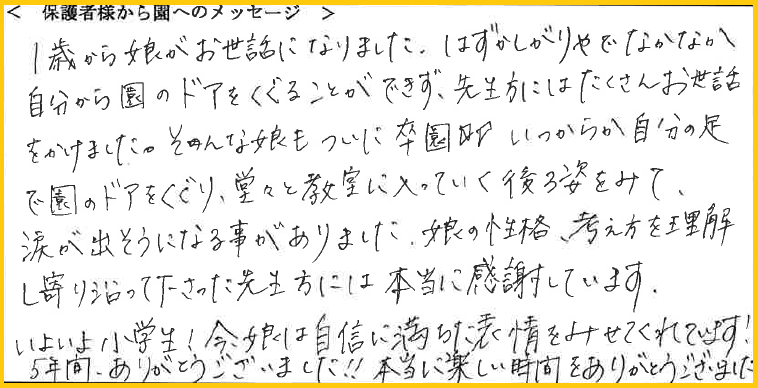 < 保護者様から園へのメッセージ >
1歳から娘がお世話になりました。はずかしがりやでなかなか
自分から園のドアをくぐることができず、先生方にはたくさんお世話
をかけました。そんな娘もついに卒園 いつからか自分の足
で園のドアをくぐり、堂々と教室に入っていく後ろ姿をみて、
涙が出そうになる事がありました。娘の性格、考え方を理解
し寄り沿って下さった先生方には本当に感謝しています。
いよいよ小学生!今、娘は自信に満ちた表情をみせてくれています!
5年間、ありがとうございました!!本当に楽しい時間をありがとうございました